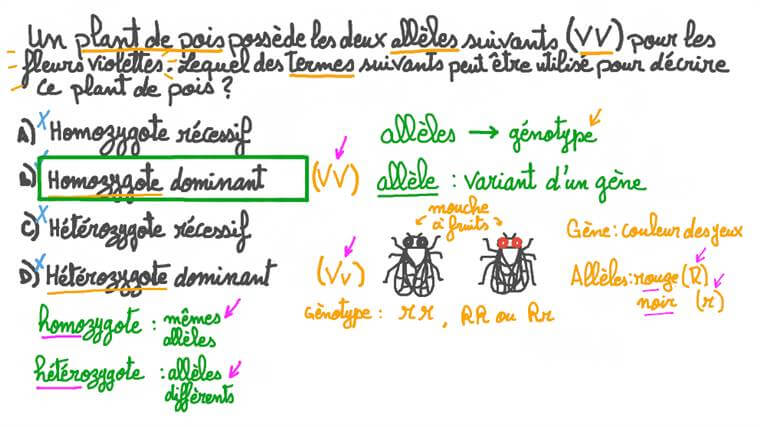 Un plant de pois possède les deux allèles suivants (VV) pour les
fleurs violettes. Lequel des termes suivants peut être utilisé pour décrire
ce plant de pois ?
A) Homozygote récessif
allèles → génotype
B) Homozygote dominant (VV)
allèle : variant d'un gène
C) Hétérozygote récessif
mouche
à fruits
Gène : couleur des yeux
D) Hétérozygote dominant (Vv)
Allèles : rouge (R)
noir (r)
Génotype : rr, RR ou Rr
homozygote : mêmes
allèles
hétérozygote : allèles
différents